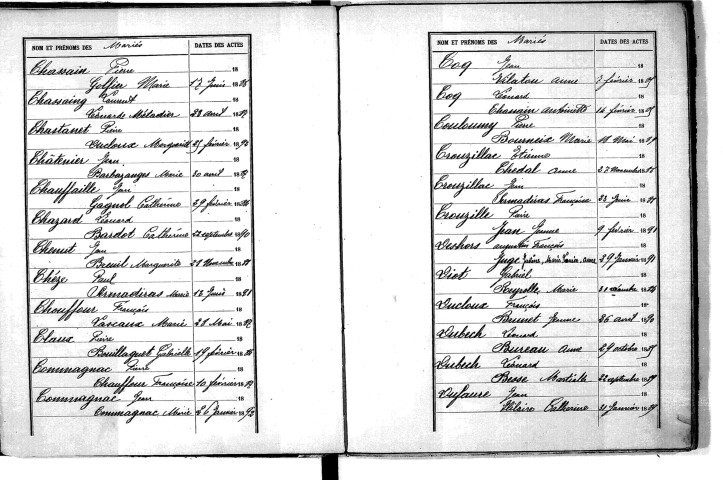 NOM ET PRÉNOMS DES Mariés DATES DES ACTES
Chassain Pierre 18
Golfier Marie 17 Juin 18
Chassaing 18
Léonarde Méladier 28 avril 18
Chastanet Pierre 18
Ducloux Marguerite 27 février 18
Châtenier Jean 18
Barbazanges Marie 20 avril 18
Chauffaille Jean 18
Gagnol Catherine 29 février 18
Chazard Léonard 18
Bardot Catherine 22 septembre 1890
Chemit Jean 18
Breuil Marguerite 21 Novembre 18
Chèze Paul 18
Dermadiras Marie 12 Juin 1891
Chouffour François 18
Lascaux Marie 28 Mai 18
Claux Pierre 18
Bouillaguet Gabrielle 19 février 18
Commagnac Pierre 18
Chauffour Françoise 10 février 18
Commagnac Jean 18
Commagnac Marie 26 Janvier 1893
NOM ET PRÉNOMS DES Mariés DATES DES ACTES
Coq Jean 18
Vélaton Anne 7 février 18
Coq Léonard 18
Chassain Antoinette 14 février 18
Couloumy Pierre 18
Bourneix Marie 18
Crouzillac Etienne 18
Chedal Anne 27 Novembre 18
Crouzillac Jean 18
Dermadiras Françoise 23 Juin 18
Crouzille Pierre 18
Jean Jeanne 9 février 1891
Deshors Augustin François 18
Juge 29 Janvier 1891
Diot Gabriel 18
Peyrolle Marie 18
Ducloux François 18
Brunet Jeanne 26 avril 1890
Dubech Léonard 18
Bureau Anne 29 octobre 18
Dubech Léonard 18
Besse Martiale 22 septembre 18
Dufaure Jean 18
Hilaire Catherine 21 Janvier 18